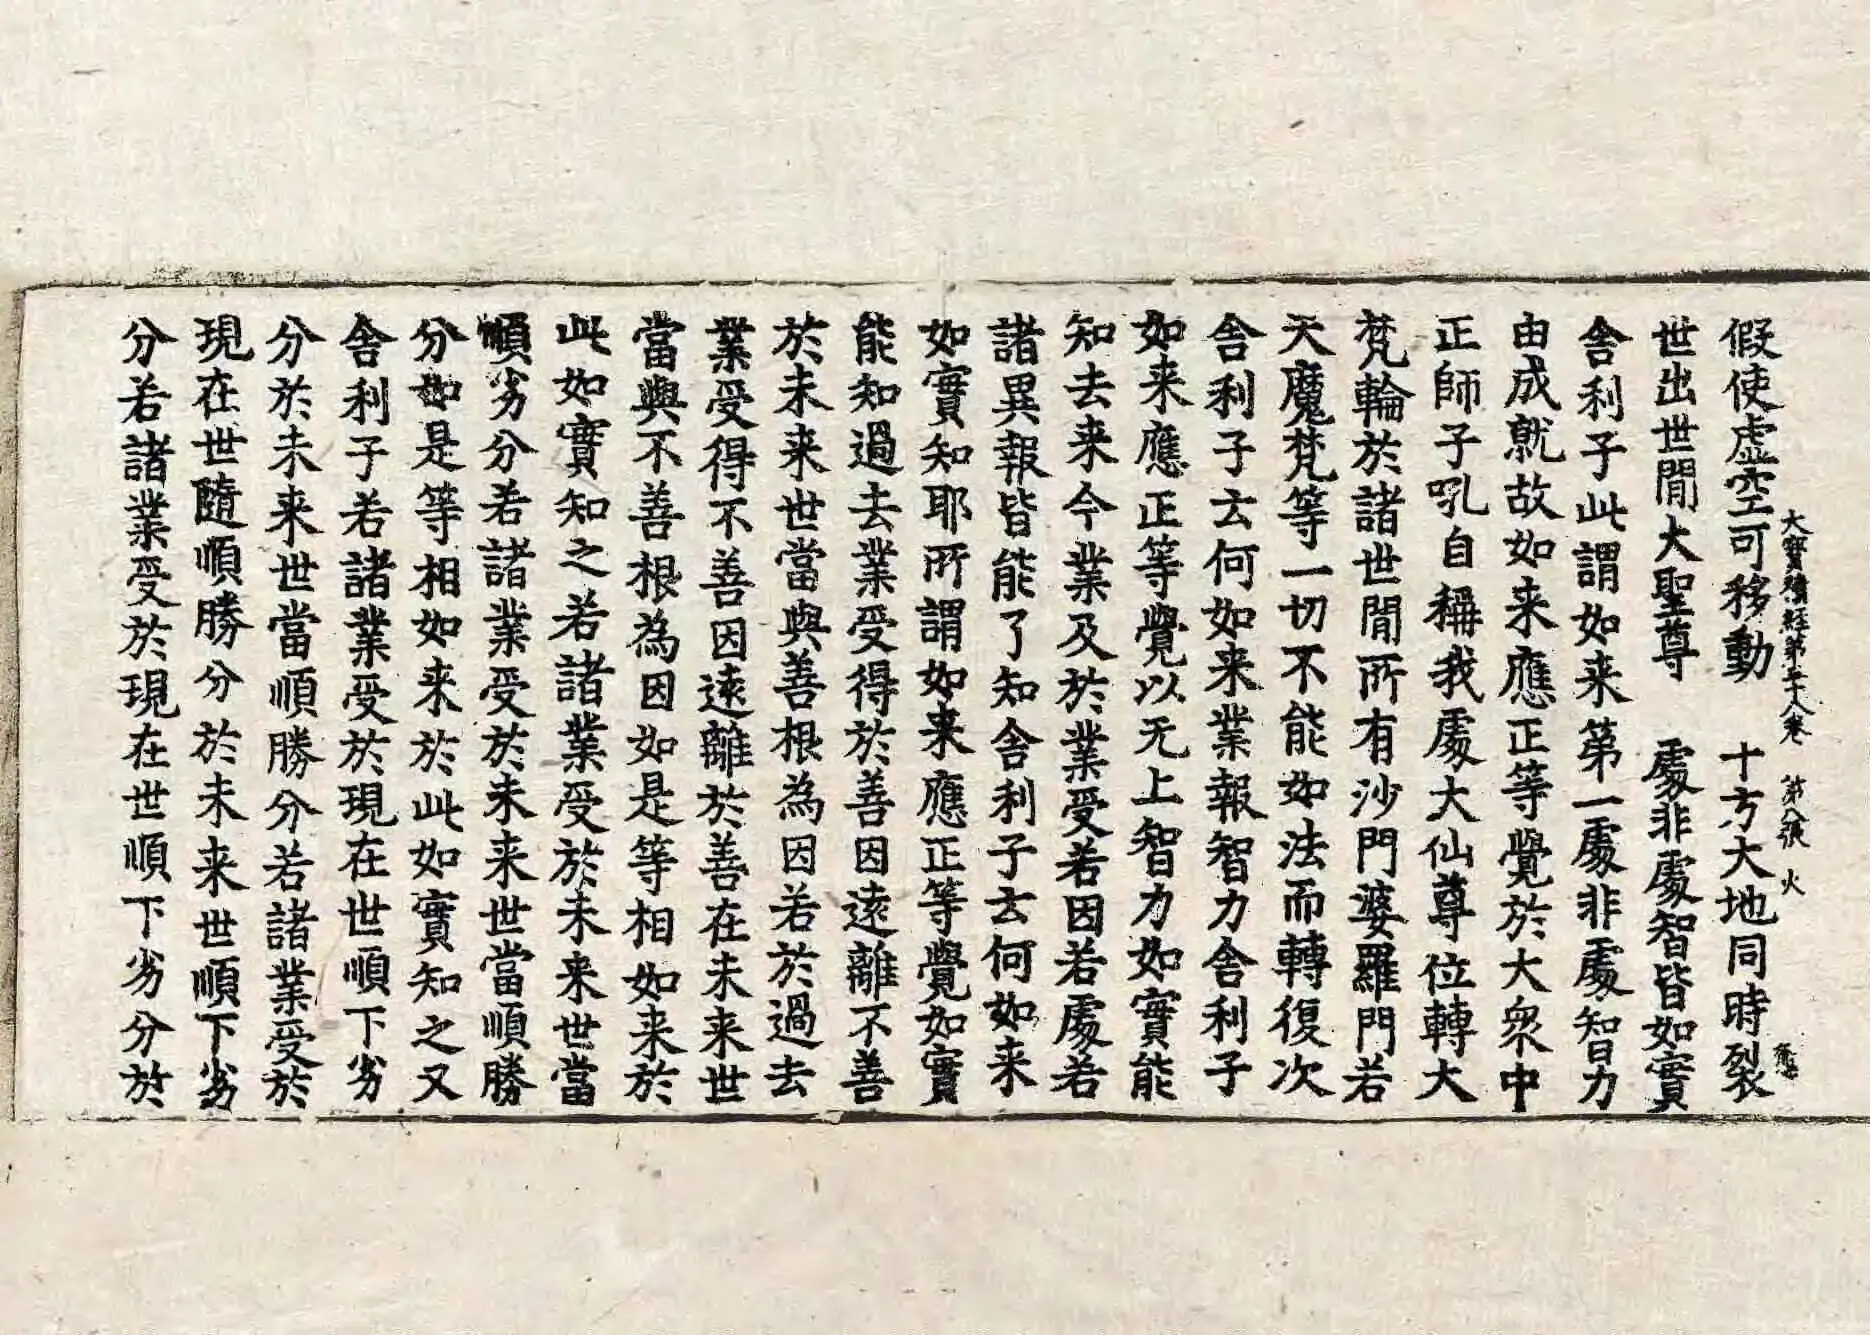 大寶積經第三十八卷 第八張 火
假使虛空可移動 十方大地同時裂
世出世間大聖尊 處非處智皆如實
舍利子此謂如来第一處非處智力
由成就故如来應正等覺於大衆中
正師子吼自稱我處大仙尊位轉大
梵輪於諸世間所有沙門婆羅門若
天魔梵等一切不能如法而轉復次
舍利子云何如来業報智力舍利子
如来應正等覺以无上智力如實能
知去来今業及於業受若因若處若
諸異報皆能了知舍利子云何如来
如實知耶所謂如来應正等覺如實
能知過去業受得於善因遠離不善
於未来世當與善根為因若於過去
業受得不善因遠離於善在未来世
當與不善根為因如是等相如来於
此如實知之若諸業受於未来世當
順劣分若諸業受於未来世當順勝
分如是等相如来於此如實知之又
舍利子若諸業受於現在世順下劣
分於未来世當順勝分若諸業受於
現在世隨順勝分於未来世順下劣
分若諸業受於現在世順下劣分於